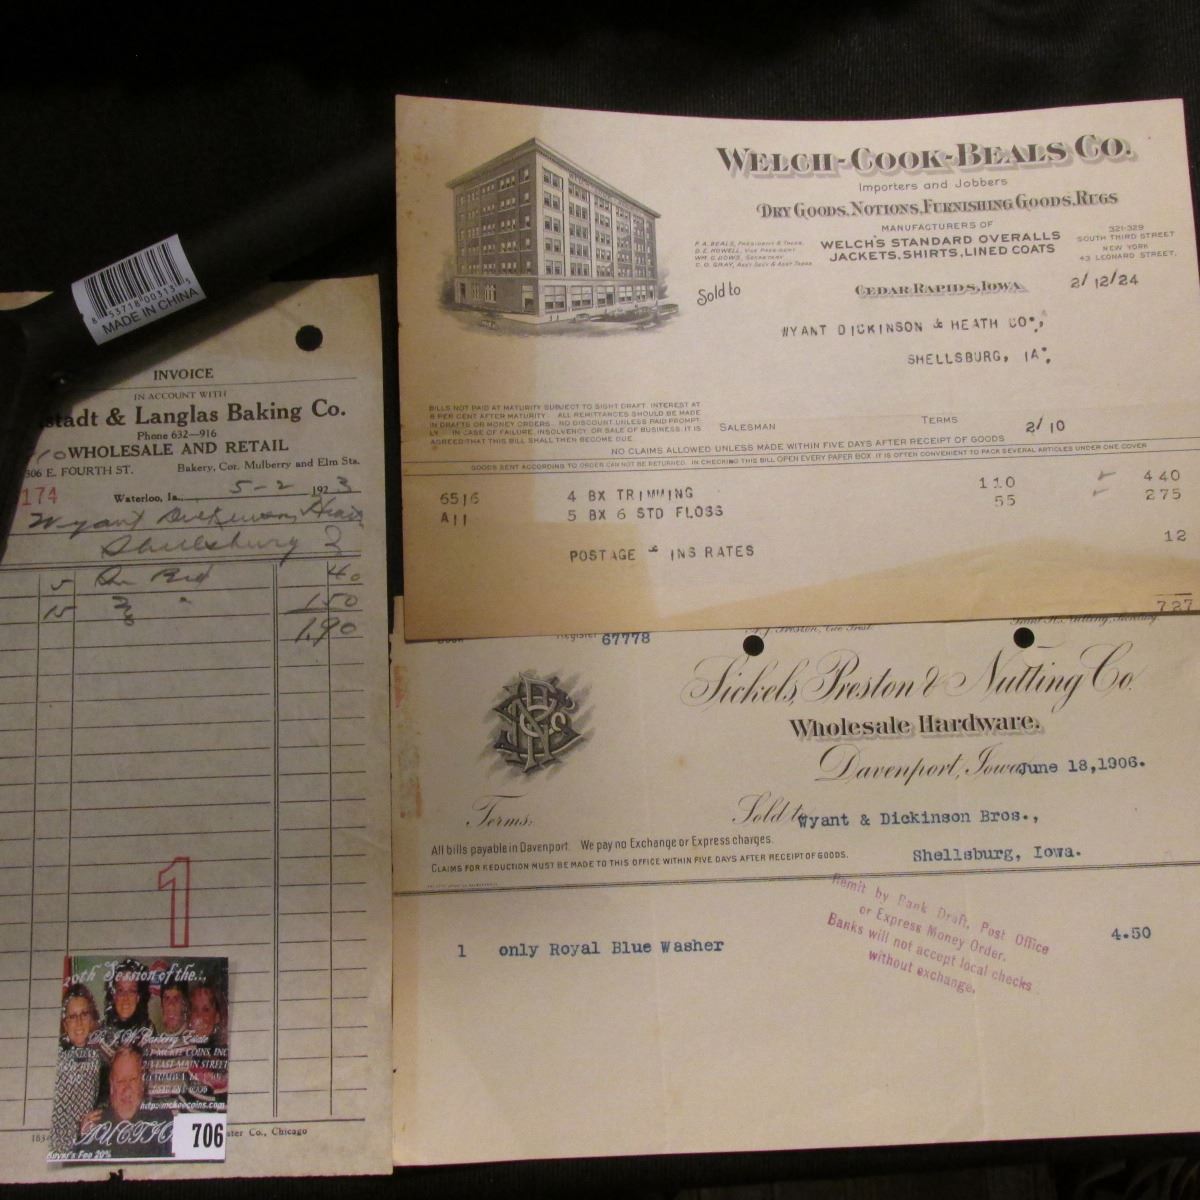 8 53718 00313 5
MADE IN CHINA
INVOICE
IN ACCOUNT WITH
stadt & Langlas Baking Co.
Phone 632-916
WHOLESALE AND RETAIL
306 E. FOURTH ST. Bakery, Cor. Mulberry and Elm Sts.
174
Waterloo, Ia., 5-2 1923
Wyant Dickinson Heath
Shellsburg
5 40
15 " 150
1.90
1
20th Session of the...
Dr. J.W. Estate
COINS, INC
EAST MAIN STREET
http:mckeecoins.com
AUCTIO
706
Buyer's Fee 20%
Co., Chicago
WELCH-COOK-BEALS CO.
Importers and Jobbers
DRY GOODS, NOTIONS, FURNISHING GOODS, RUGS
MANUFACTURERS OF
WELCH'S STANDARD OVERALLS
JACKETS, SHIRTS, LINED COATS
321-329
SOUTH THIRD STREET
NEW YORK
43 LEONARD STREET.
F. A. BEALS, PRESIDENT & TREAS.
D. E. HOWELL, VICE PRESIDENT
WM. G. DOWS, SECRETARY
C. O. GRAY, ASST SECY & ASST TREAS
Sold to
CEDAR RAPIDS, IOWA
2/12/24
WYANT DICKINSON & HEATH CO.,
SHELLSBURG, IA.
BILLS NOT PAID AT MATURITY SUBJECT TO SIGHT DRAFT. INTEREST AT
8 PER CENT AFTER MATURITY. ALL REMITTANCES SHOULD BE MADE
IN DRAFTS OR MONEY ORDERS. NO DISCOUNT UNLESS PAID PROMPT-
LY. IN CASE OF FAILURE, INSOLVENCY OR SALE OF BUSINESS, IT IS
AGREED THAT THIS BILL SHALL THEN BECOME DUE.
SALESMAN
TERMS 2/10
NO CLAIMS ALLOWED UNLESS MADE WITHIN FIVE DAYS AFTER RECEIPT OF GOODS
GOODS SENT ACCORDING TO ORDER CAN NOT BE RETURNED. IN CHECKING THIS BILL OPEN EVERY PAPER BOX. IT IS OFTEN CONVENIENT TO PACK SEVERAL ARTICLES UNDER ONE COVER
6516 4 BX TRIMMING 110 440
A11 5 BX 6 STD FLOSS 55 275
POSTAGE & INS RATES 12
727
Register 67778
A. J. Preston, Vice Prest.
Sickels, Preston & Nutting Co.
Wholesale Hardware.
Davenport, Iowa June 18, 1906.
Terms: Sold to Wyant & Dickinson Bros.,
Shellsburg, Iowa.
All bills payable in Davenport. We pay no Exchange or Express charges.
CLAIMS FOR REDUCTION MUST BE MADE TO THIS OFFICE WITHIN FIVE DAYS AFTER RECEIPT OF GOODS.
Remit by Bank Draft, Post Office
or Express Money Order.
Banks will not accept local checks
without exchange.
1 only Royal Blue Washer 4.50